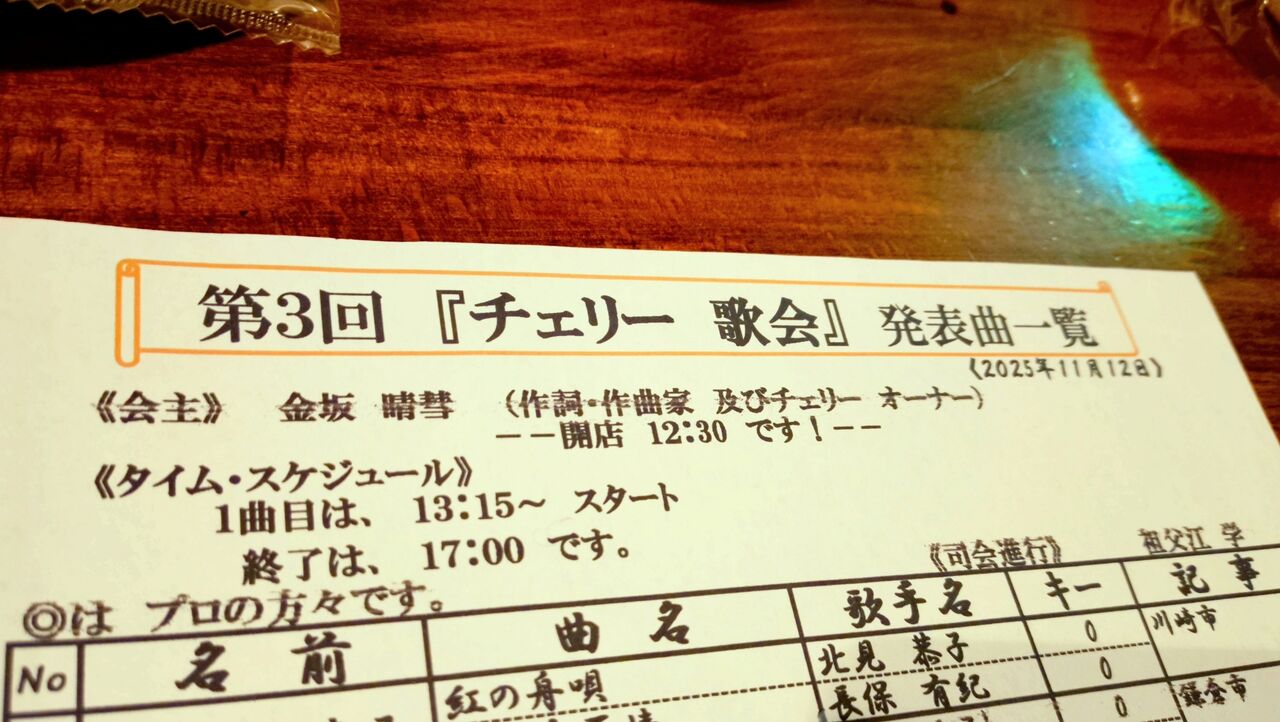 第3回 『チェリー 歌会』 発表曲一覧
(2025年11月12日)
《会主》 金坂 晴彗 (作詞・作曲家 及びチェリー オーナー)
――開店 12:30 です!――
《タイム・スケジュール》
1曲目は、 13:15~ スタート
終了は、 17:00 です。
《司会進行》 祖父江 学
◎は プロの方々です。
No 名前 曲名 歌手名 キー 記事
紅の舟唄 北見 恭子 0 川崎市
長保 有紀 0
0 鎌倉市